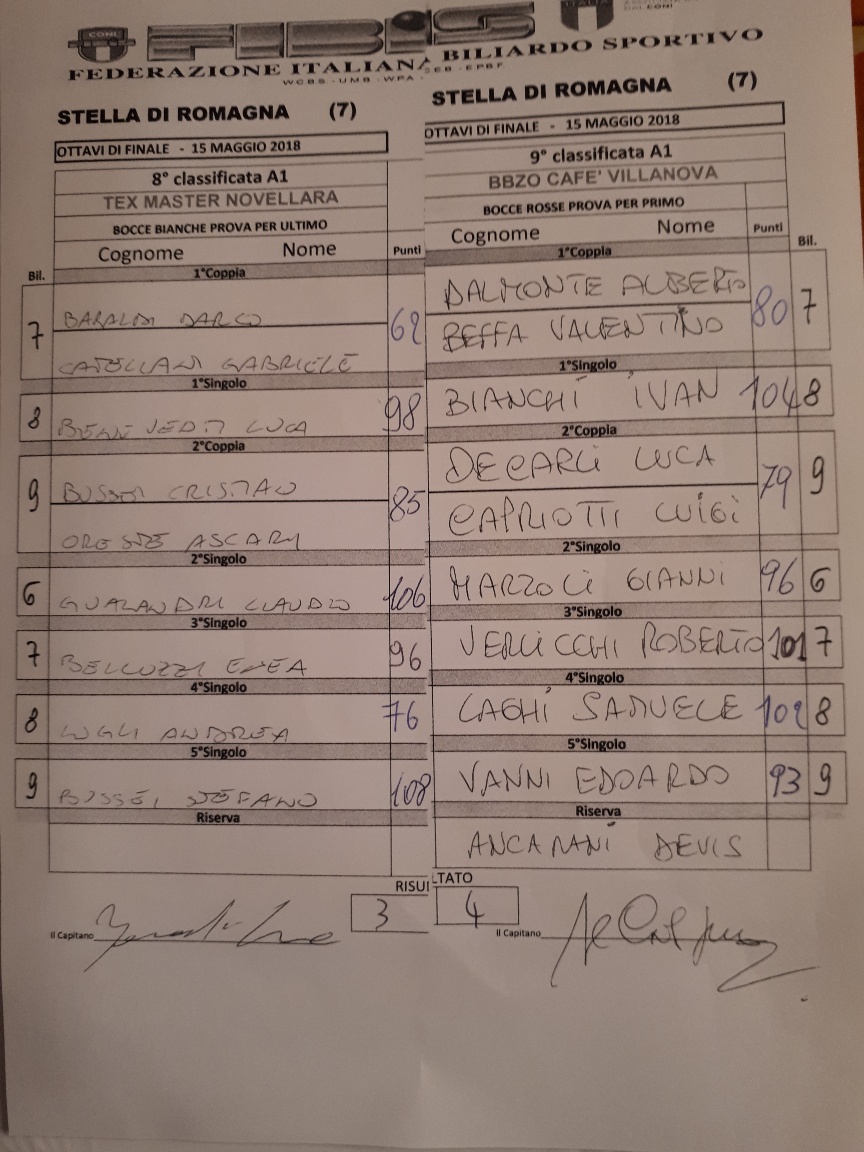 CONI FIBiS
FEDERAZIONE ITALIANA BILIARDO SPORTIVO
W.C.B.S - U.M.B - W.P.A -
STELLA DI ROMAGNA (7)
OTTAVI DI FINALE - 15 MAGGIO 2018
8° classificata A1
TEX MASTER NOVELLARA
BOCCE BIANCHE PROVA PER ULTIMO
Cognome Nome Punti
Bil.
1°Coppia
7 BARALDI DARCO 62
CATELLANI GABRIELE
1°Singolo
8 BENEVENTI LUCA 98
2°Coppia
9 BUSSEI CRISTIAN 85
ORESTE ASCARI
2°Singolo
6 GUALANDRI CLAUDIO 106
3°Singolo
7 BELLUZZI ENEA 96
4°Singolo
8 LUGLI ANDREA 76
5°Singolo
9 BUSSEI STEFANO 108
Riserva
RISUL
3
Il Capitano
STELLA DI ROMAGNA (7)
OTTAVI DI FINALE - 15 MAGGIO 2018
9° classificata A1
BBZO CAFE' VILLANOVA
BOCCE ROSSE PROVA PER PRIMO
Cognome Nome Punti
Bil.
1°Coppia
DALMONTE ALBERTO 80 7
BEFFA VALENTINO
1°Singolo
BIANCHI IVAN 104 8
2°Coppia
DECARLI LUCA 79 9
CAPRIOTTI LUIGI
2°Singolo
MARZOLI GIANNI 96 6
3°Singolo
VERLICCHI ROBERTO 101 7
4°Singolo
LAGHI SAMUELE 102 8
5°Singolo
VANNI EDOARDO 93 9
Riserva
ANCARANI DEVIS
LTATO
4
Il Capitano